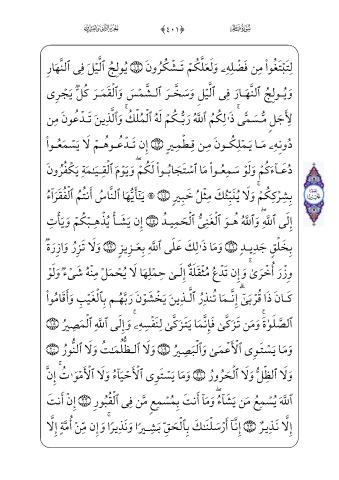 ﴿٤٠١﴾
لِتَبْتَغُوا۟ مِن فَضْلِهِۦ وَلَعَلَّكُمْ تَشْكُرُونَ ۝ يُولِجُ ٱلَّيْلَ فِى ٱلنَّهَارِ
وَيُولِجُ ٱلنَّهَارَ فِى ٱلَّيْلِ وَسَخَّرَ ٱلشَّمْسَ وَٱلْقَمَرَ كُلٌّ يَجْرِى
لِأَجَلٍ مُّسَمًّى ۚ ذَٰلِكُمُ ٱللَّهُ رَبُّكُمْ لَهُ ٱلْمُلْكُ ۚ وَٱلَّذِينَ تَدْعُونَ مِن
دُونِهِۦ مَا يَمْلِكُونَ مِن قِطْمِيرٍ ۝ إِن تَدْعُوهُمْ لَا يَسْمَعُوا۟
دُعَآءَكُمْ وَلَوْ سَمِعُوا۟ مَا ٱسْتَجَابُوا۟ لَكُمْ ۖ وَيَوْمَ ٱلْقِيَٰمَةِ يَكْفُرُونَ
بِشِرْكِكُمْ ۚ وَلَا يُنَبِّئُكَ مِثْلُ خَبِيرٍ ۝ ۞ يَٰٓأَيُّهَا ٱلنَّاسُ أَنتُمُ ٱلْفُقَرَآءُ
إِلَى ٱللَّهِ ۖ وَٱللَّهُ هُوَ ٱلْغَنِىُّ ٱلْحَمِيدُ ۝ إِن يَشَأْ يُذْهِبْكُمْ وَيَأْتِ
بِخَلْقٍ جَدِيدٍ ۝ وَمَا ذَٰلِكَ عَلَى ٱللَّهِ بِعَزِيزٍ ۝ وَلَا تَزِرُ وَازِرَةٌ
وِزْرَ أُخْرَىٰ ۚ وَإِن تَدْعُ مُثْقَلَةٌ إِلَىٰ حِمْلِهَا لَا يُحْمَلْ مِنْهُ شَىْءٌ وَلَوْ
كَانَ ذَا قُرْبَىٰٓ ۗ إِنَّمَا تُنذِرُ ٱلَّذِينَ يَخْشَوْنَ رَبَّهُم بِٱلْغَيْبِ وَأَقَامُوا۟
ٱلصَّلَوٰةَ ۚ وَمَن تَزَكَّىٰ فَإِنَّمَا يَتَزَكَّىٰ لِنَفْسِهِۦ ۚ وَإِلَى ٱللَّهِ ٱلْمَصِيرُ ۝
وَمَا يَسْتَوِى ٱلْأَعْمَىٰ وَٱلْبَصِيرُ ۝ وَلَا ٱلظُّلُمَٰتُ وَلَا ٱلنُّورُ ۝
وَلَا ٱلظِّلُّ وَلَا ٱلْحَرُورُ ۝ وَمَا يَسْتَوِى ٱلْأَحْيَآءُ وَلَا ٱلْأَمْوَٰتُ ۚ إِنَّ
ٱللَّهَ يُسْمِعُ مَن يَشَآءُ ۖ وَمَآ أَنتَ بِمُسْمِعٍ مَّن فِى ٱلْقُبُورِ ۝ إِنْ أَنتَ
إِلَّا نَذِيرٌ ۝ إِنَّآ أَرْسَلْنَٰكَ بِٱلْحَقِّ بَشِيرًا وَنَذِيرًا ۚ وَإِن مِّنْ أُمَّةٍ إِلَّا